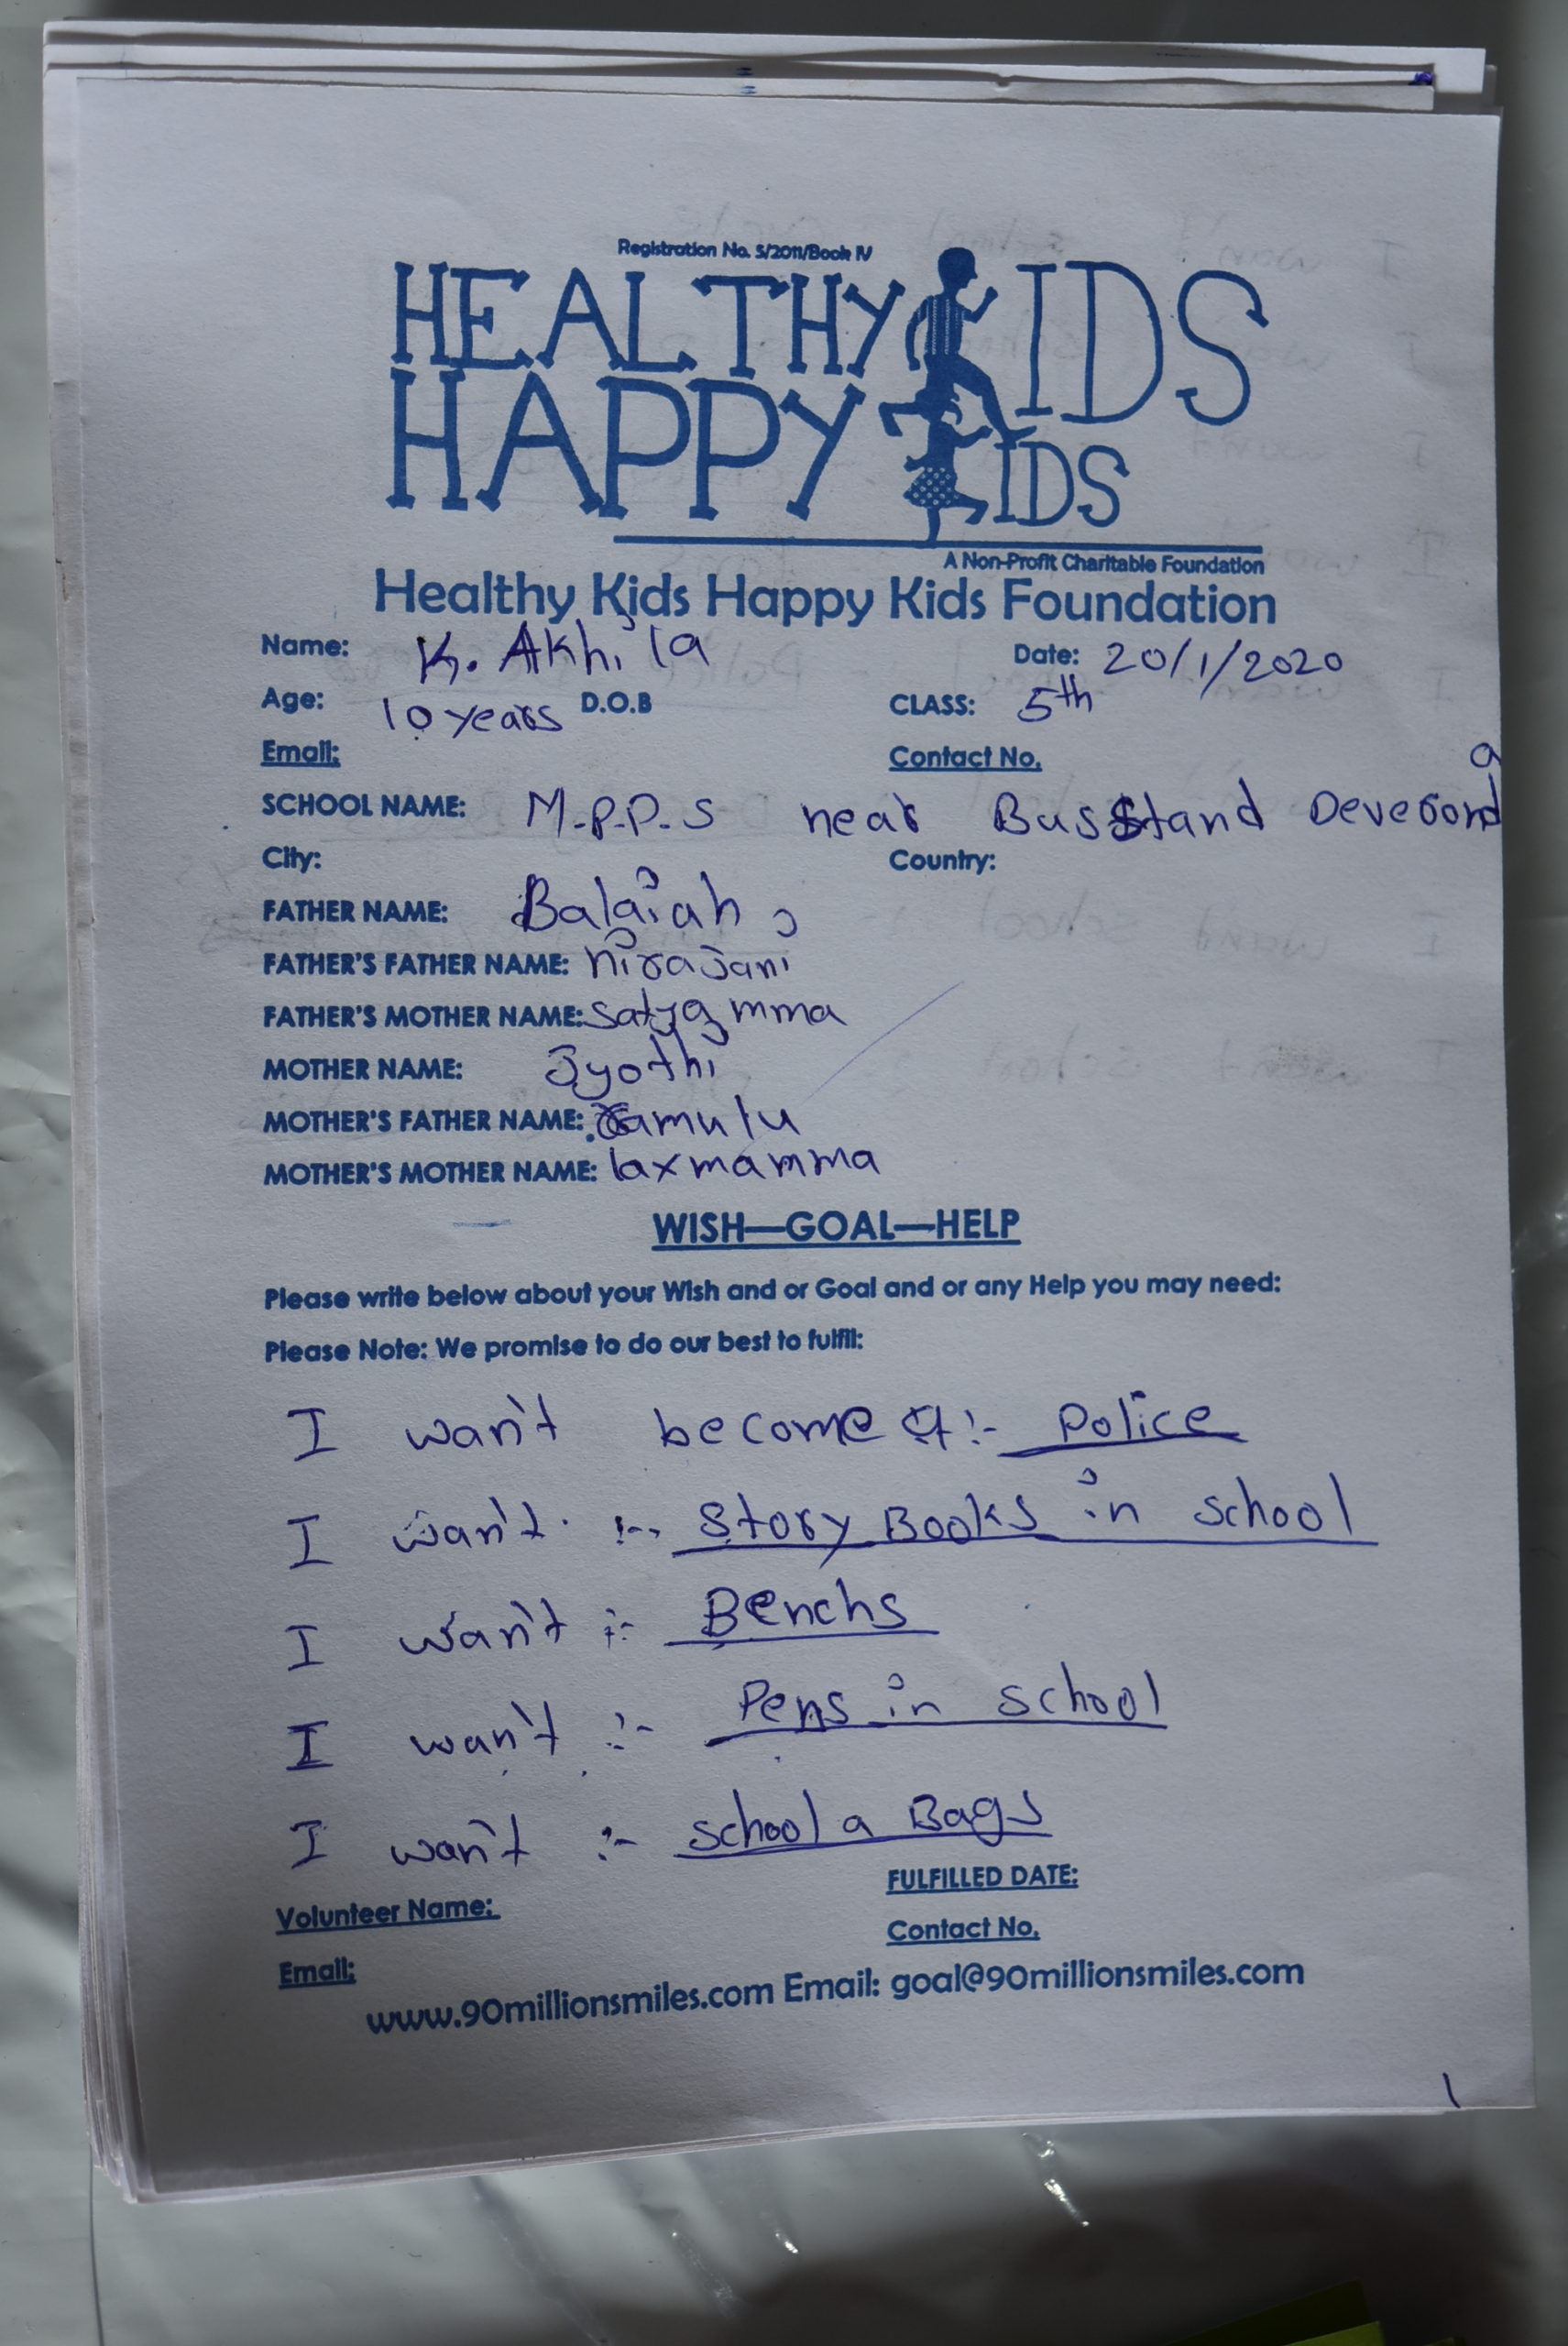 Registration No. 5/2011/Book IV
HEALTHY KIDS
HAPPY KIDS
A Non-Profit Charitable Foundation
Healthy Kids Happy Kids Foundation
Name: K. Akhila Date: 20/1/2020
Age: 10 years D.O.B CLASS: 5th
Email: Contact No.
SCHOOL NAME: M.P.P.S near Busstand Deverconda
City: Country:
FATHER NAME: Balaiah
FATHER'S FATHER NAME: nirajani
FATHER'S MOTHER NAME: satyamma
MOTHER NAME: Jyothi
MOTHER'S FATHER NAME: ramulu
MOTHER'S MOTHER NAME: laxmamma
WISH—GOAL—HELP
Please write below about your Wish and or Goal and or any Help you may need:
Please Note: We promise to do our best to fulfil:
I wan't become a :- Police
I wan't :- Story Books in school
I wan't :- Benchs
I wan't :- Pens in school
I wan't :- school a Bags
FULFILLED DATE:
Volunteer Name: Contact No.
Email:
www.90millionsmiles.com Email: goal@90millionsmiles.com
1